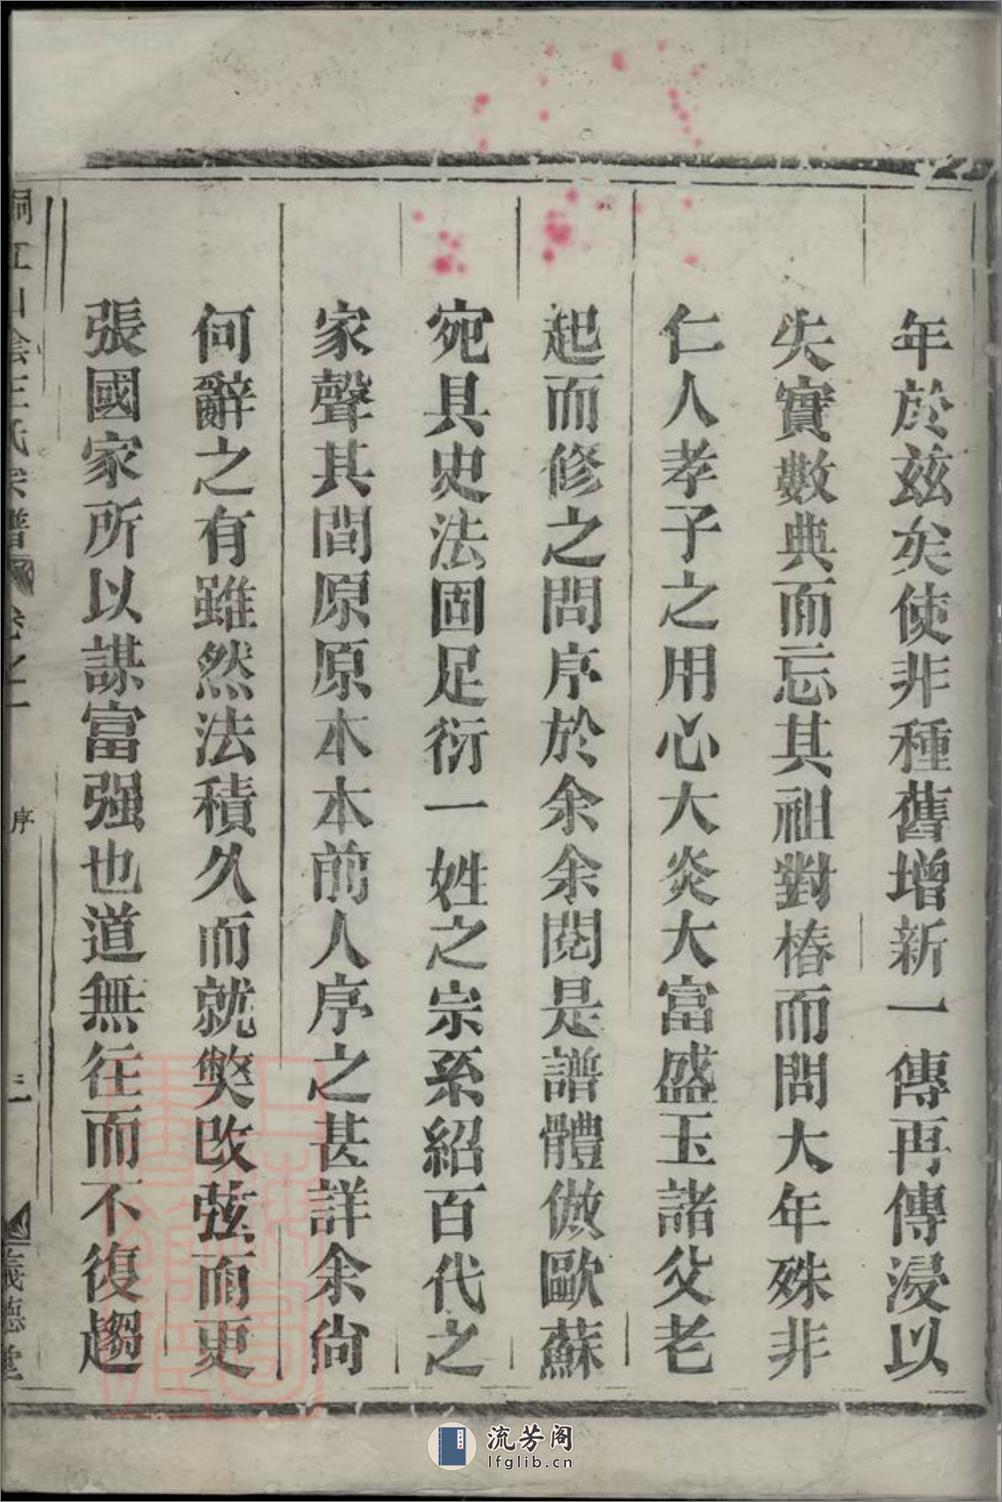 年於玆矣使非種舊增新一傳再傳浸以
失實數典而忘其祖對椿而問大年殊非
仁人孝子之用心大炎大富盛玉諸父老
起而修之問序於余余閱是譜體倣歐蘇
宛具史法固足衍一姓之宗系紹百代之
家聲其間原原本本前人序之甚詳余尙
何辭之有雖然法積久而就獘改弦而更
張國家所以謀富强也道無往而不復趨
山陰王氏宗譜 卷之一 序 義德堂
流芳阁
lfglib.cn